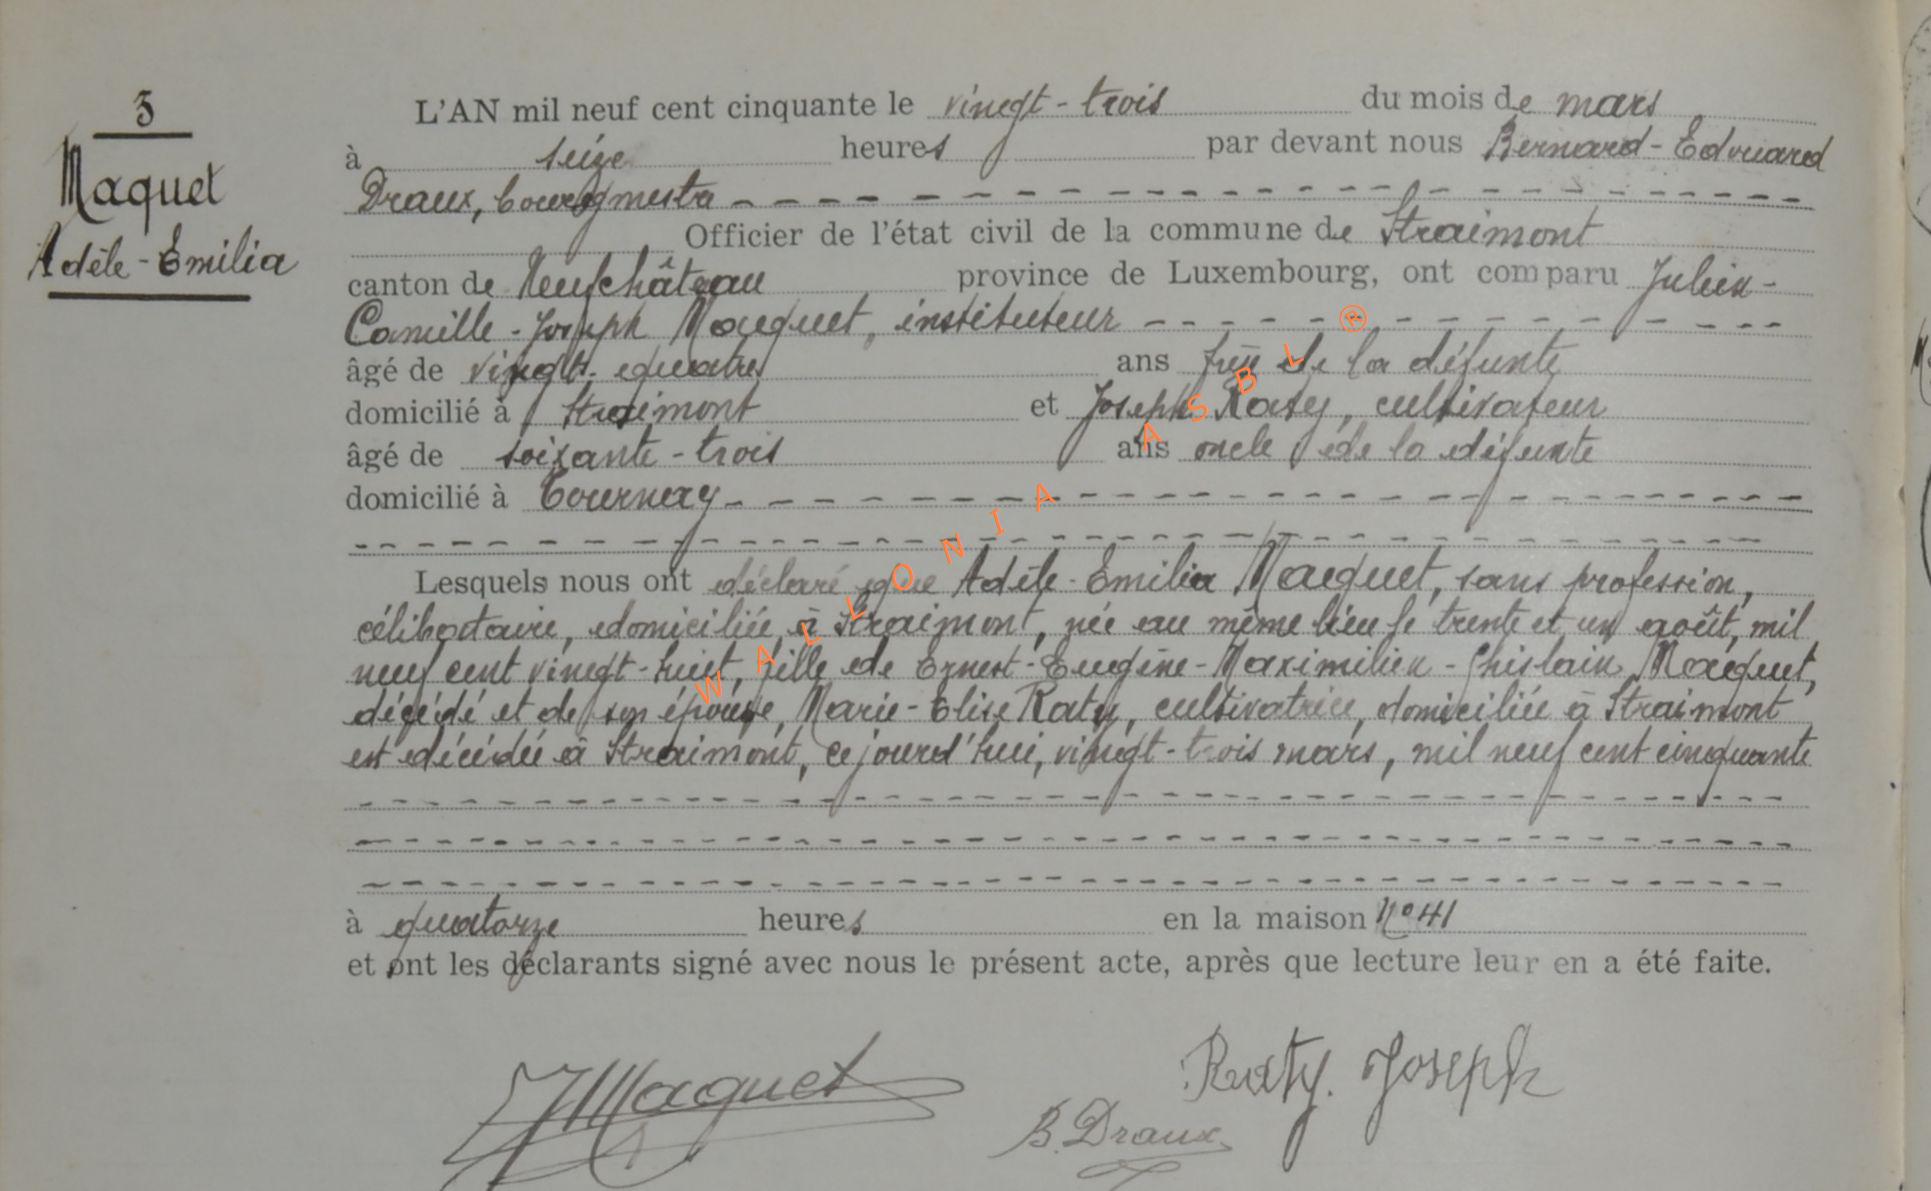 3
Maquet
Adèle-Emilia
L'AN mil neuf cent cinquante le vingt-trois du mois de mars
à seize heures par devant nous Bernard-Edouard
Draux, bourgmestre
Officier de l'état civil de la commune de Straimont
canton de Neufchâteau province de Luxembourg, ont comparu Julien-
Camille-Joseph Maquet, instituteur
âgé de vingt-quatre ans frère de la défunte
domicilié à Straimont et Joseph Raty, cultivateur
âgé de soixante-trois ans oncle de la défunte
domicilié à Tournay
Lesquels nous ont déclaré que Adèle-Emilia Maquet, sans profession,
célibataire, domiciliée à Straimont, née au même lieu le trente et un août, mil
neuf cent vingt-huit, fille de Ernest-Eugène-Maximilien-Ghislain Maquet,
décédé et de son épouse, Marie-Elise Raty, cultivatrice, domiciliée à Straimont
est décédée à Straimont, ce jourd'hui, vingt-trois mars, mil neuf cent cinquante
à quatorze heures en la maison N° 41
et ont les déclarants signé avec nous le présent acte, après que lecture leur en a été faite.
JMaquet
Raty. Joseph
B. Draux
WALLONIA ASBL ®